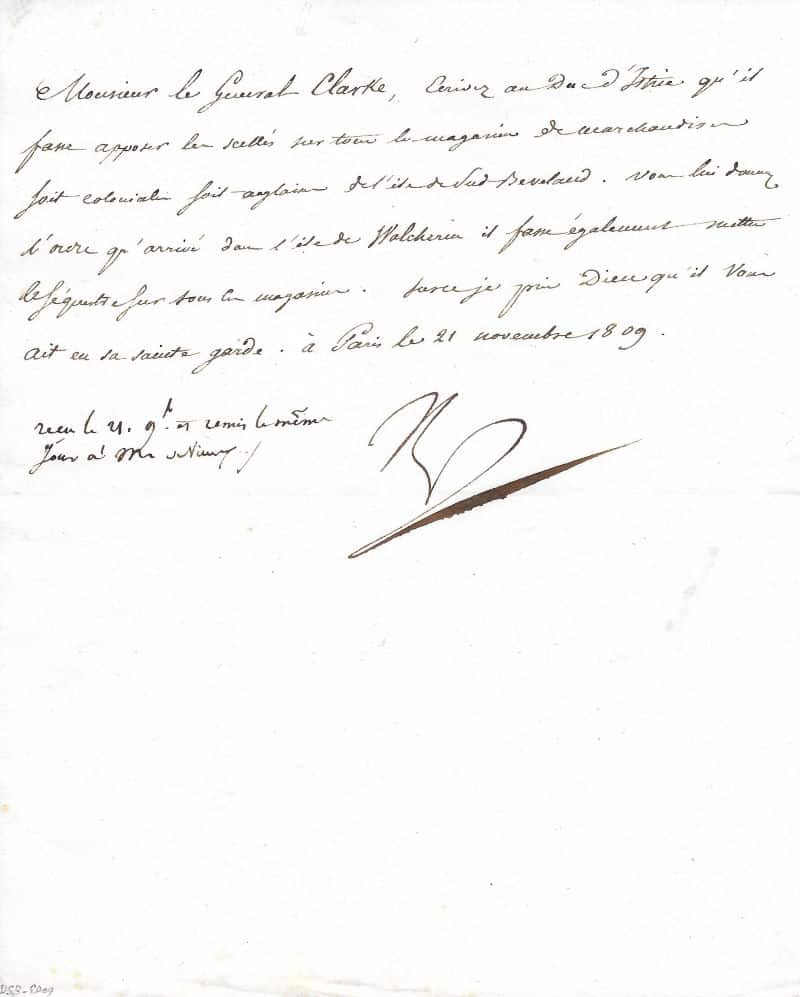 Monsieur le Général Clarke, Ecrivez au Duc d'Istrie qu'il
fasse apposer les scellés sur tous les magasins de marchandises
soit coloniales soit anglaises de l'ile de Sud Beveland. vous lui donnerez
l'ordre qu'arrivé dans l'ile de Walcheren il fasse également mettre
le séquestre sur tous les magasins. sur ce je prie Dieu qu'il vous
ait en sa sainte garde. à Paris le 21 novembre 1809.
recu le 21. 9b. et remis le même
Jour à Mr